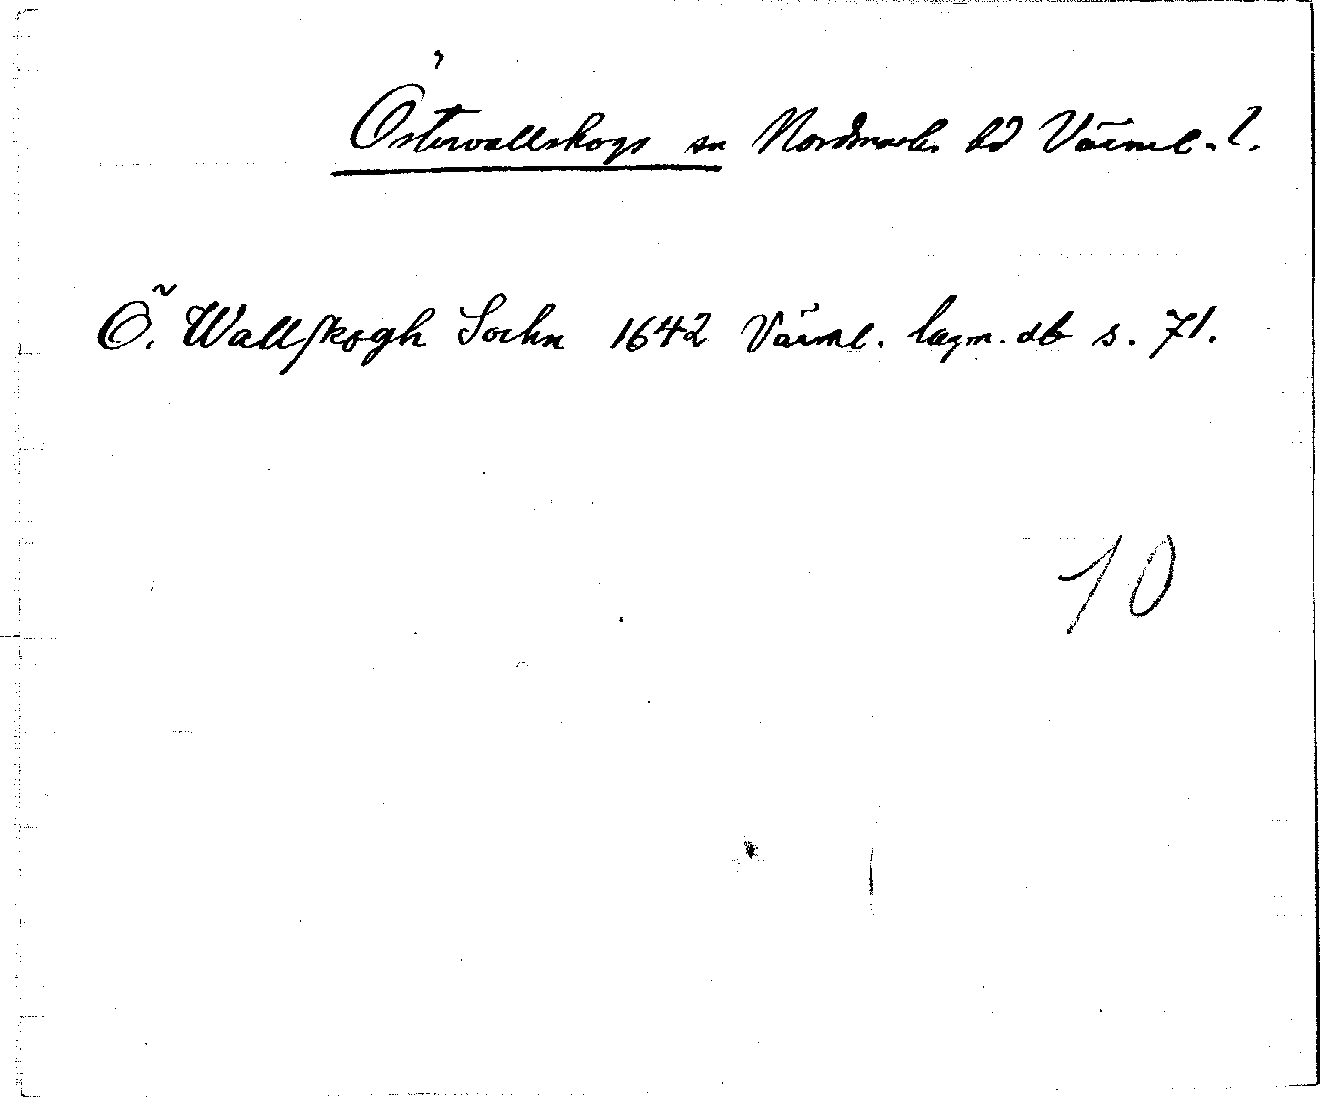 Östervallskogs sn Nordmarks hd Värml. l.
Ö. Wallskogh Sochn 1642 Värml. lagm. db s. 71.
10